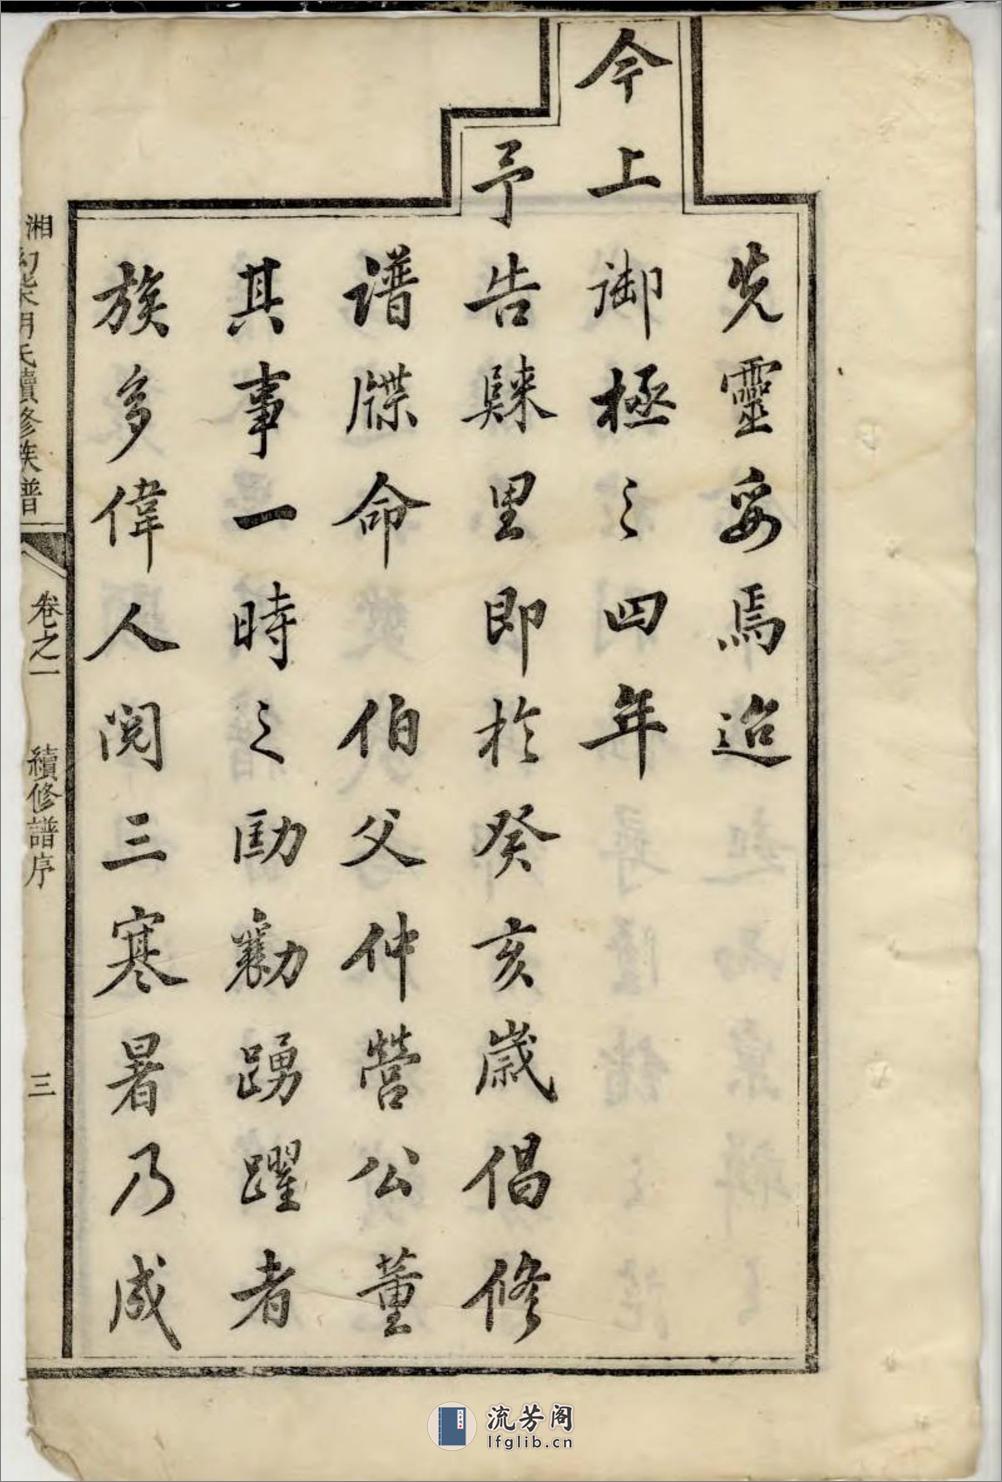 先靈妥焉迨
今上
御極之四年
予
告歸里即於癸亥歲倡修
譜牒命 伯父仲營公董
其事一時之勷勸踴躍者
族多偉人閱三寒暑乃成
湘 氏續修族譜
卷之一
續修譜序
三
流芳阁
lfglib.cn